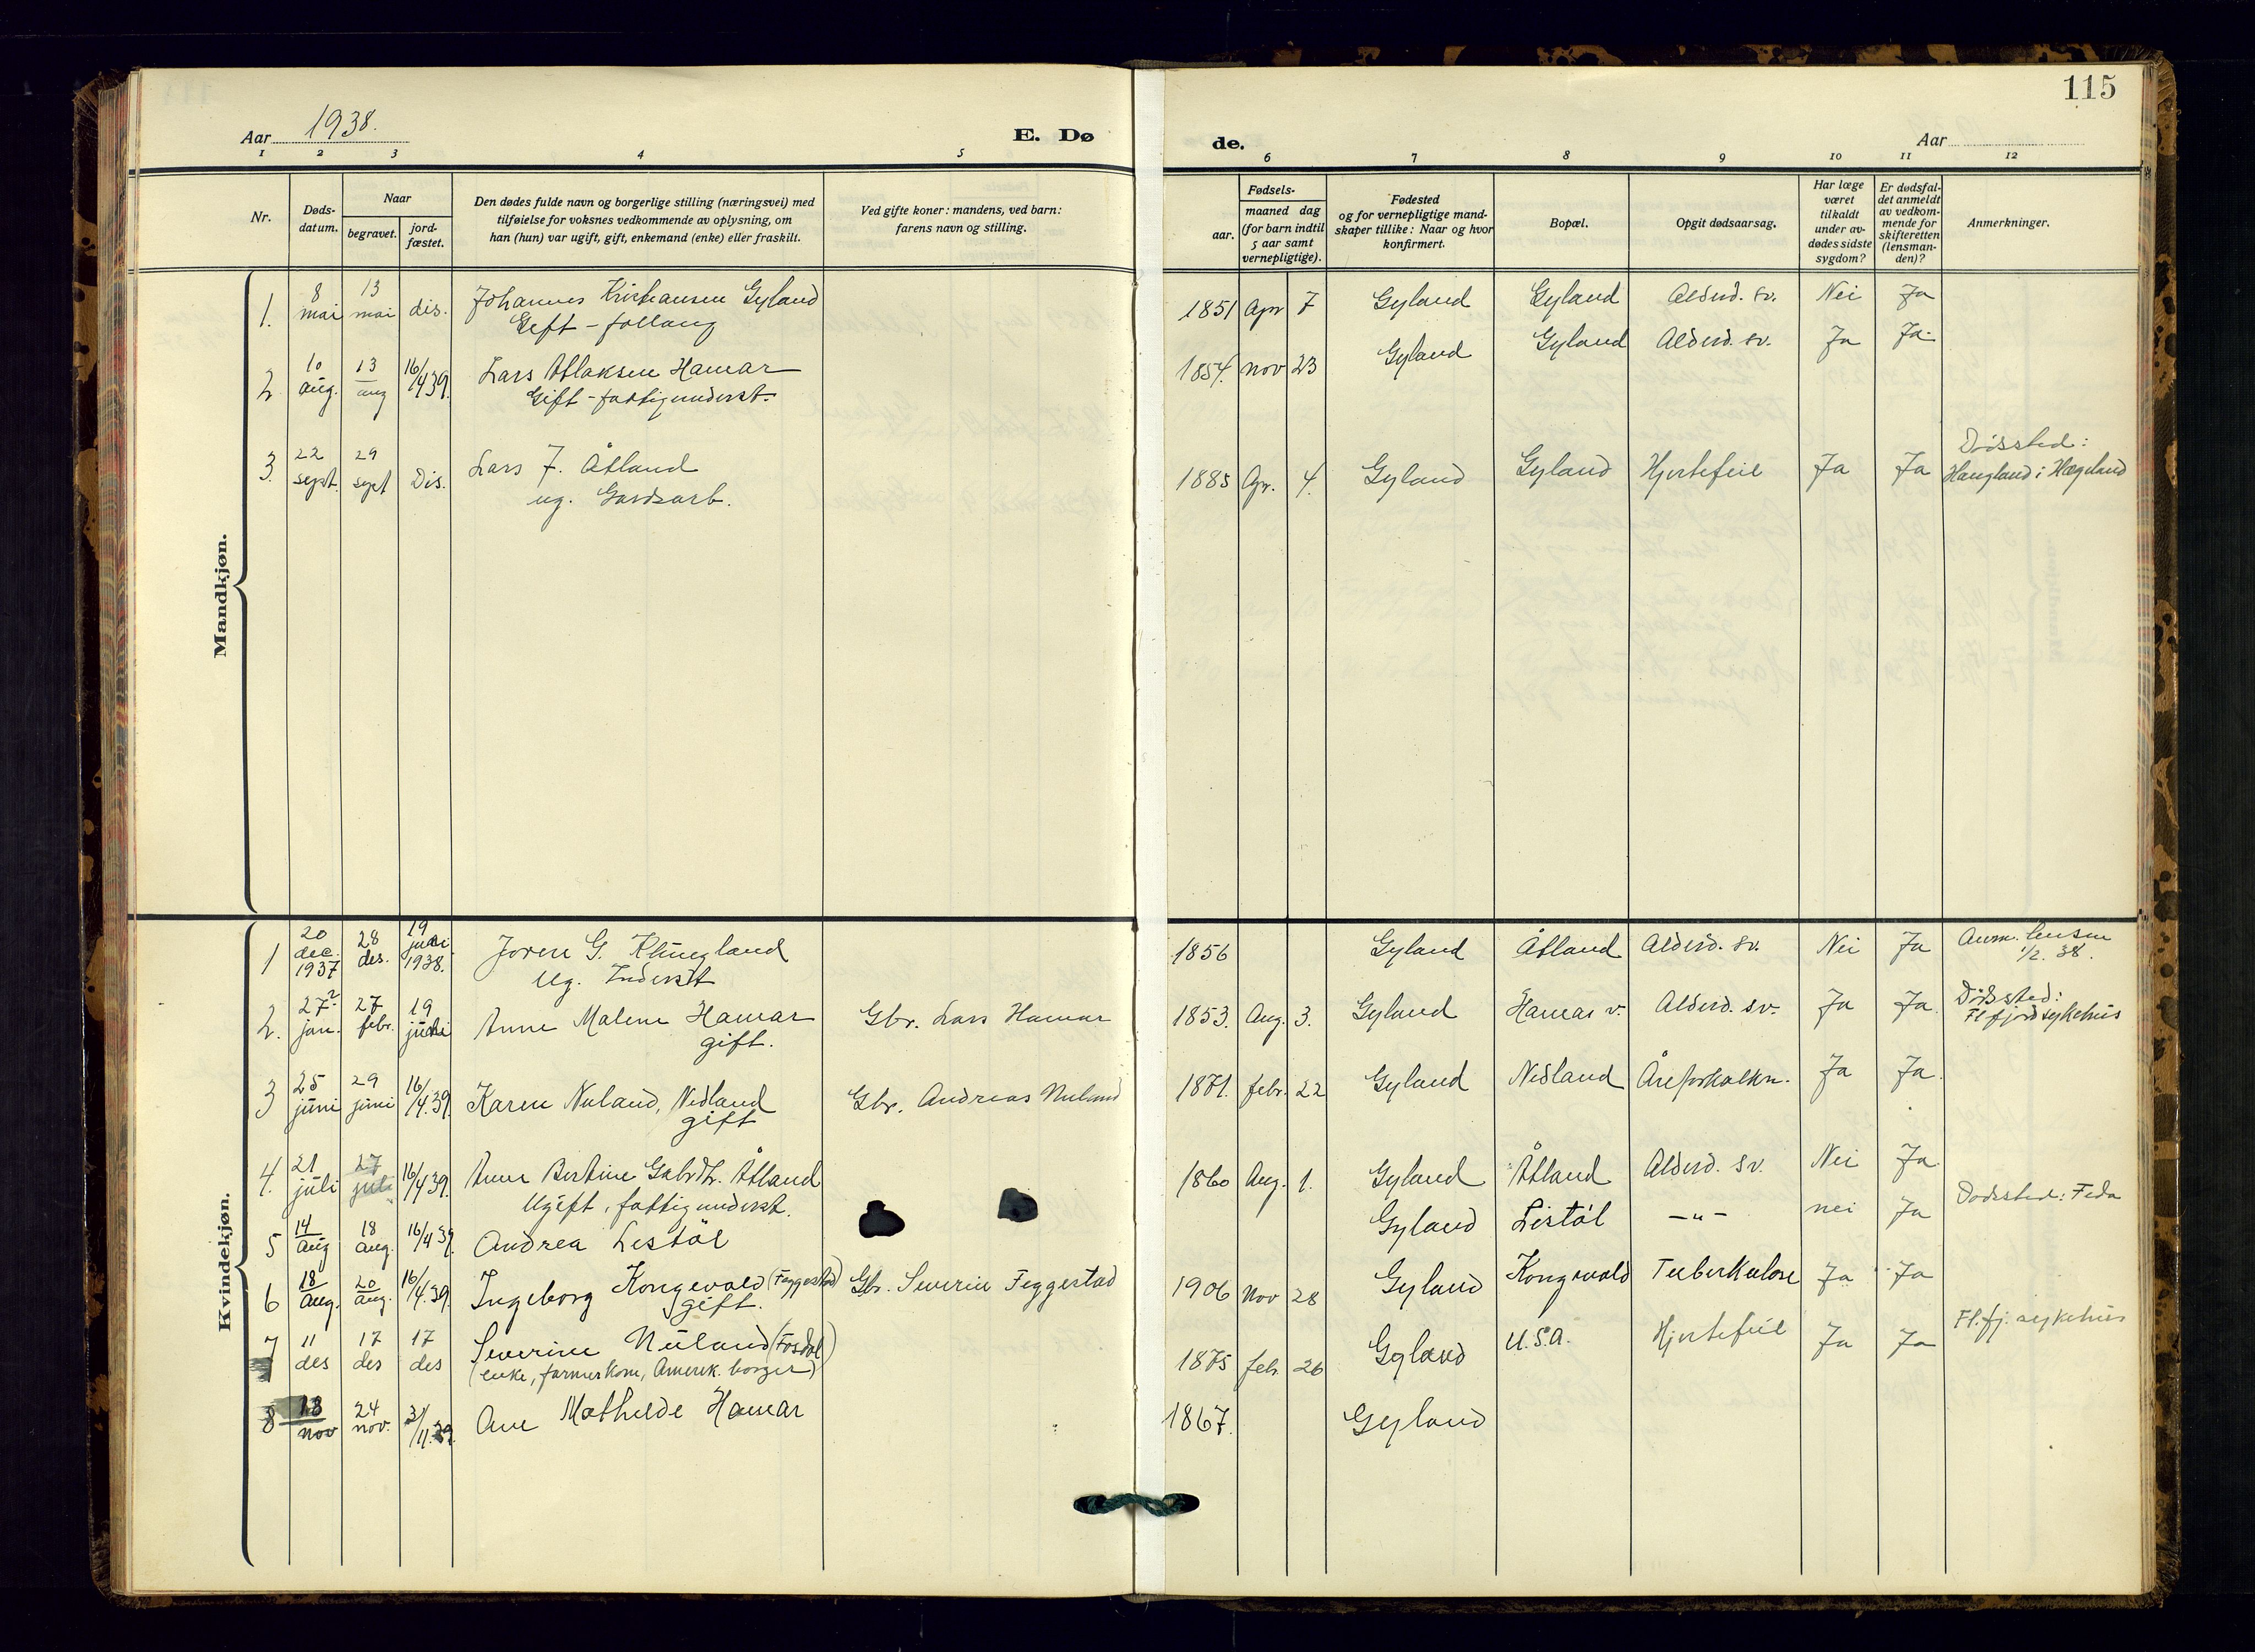 115
Aar 1938.
E. Dø
de.
Aar
1 2 3 4 5 6 7 8 9 10 11 12
Nr.
Døds-
datum.
Naar
begravet.
jord-
fæstet.
Den dødes fulde navn og borgerlige stilling (næringsvei) med
tilføielse for voksnes vedkommende av oplysning, om
han (hun) var ugift, gift, enkemand (enke) eller fraskilt.
Ved gifte koner: mandens, ved barn:
farens navn og stilling.
Fødsels-
aar.
maaned dag
(for barn indtil
5 aar samt
vernepligtige).
Fødested
og for vernepligtige mand-
skaper tillike: Naar og hvor
konfirmert.
Bopæl.
Opgit dødsaarsag.
Har læge
været
tilkaldt
under av-
dødes sidste
sygdom?
Er dødsfal-
det anmeldt
av vedkom-
mende for
skifteretten
(lensman-
den)?
Anmerkninger.
Mandkjøn.
1. 8 mai 13 mai dis. Johannes Kristiansen Gyland 1851 Apr 7 Gyland Gyland Alderd. sv. Nei Ja
Gift - follaug
2. 10 aug. 13 aug 16/4 39. Lars Atlaksen Hamar 1854. nov 23 Gyland Gyland Alderd. sv. Ja Ja
Gift - fattigunderst.
3. 22 sept. 29 sept Dis. Lars F. Åtland 1885 Apr. 4. Gyland Gyland Hjertefeil Ja Ja Dødssted:
Haugland i Hægeland
ug. Gardsarb.
Kvindekjøn.
1 20 dec. 1937 28 des. 19 juni 1938. Joren G. Klungland 1856 Gyland Åtland Alderd. sv. Nei Ja Anm. lensm
1/2. 38.
Ug. Inderst
2. 27 jan. 27 febr. 19 juni Anne Malene Hamar Gbr. Lars Hamar 1853. Aug. 3. Gyland Hamar v. Alderd. sv. Ja Ja. Dødssted:
Fl.fjord sykehus
gift.
3 25 juni 29 juni 16/4. 39. Karen Nuland, Nedland Gbr. Andreas Nuland 1871. febr. 22 Gyland Nedland Åreforkalkn. Ja Ja.
gift
4. 21 juli 27 juli 16/4 39. Anne Bertine Gabrdtr. Åtland 1860 Aug. 1. Gyland Åtland Alderd. sv. Nei Ja.
Ugift, fattigunderst.
5 14 Aug 18 Aug. 16/4 39. Andrea Lestøl Gyland Listøl — " — nei Ja Dødssted: Feda
6 18 Aug. 20 aug. 16/4. 39. Ingeborg Kongevold (Feggestad) Gbr. Severin Feggestad 1906 Nov 28 Gyland Kongevold Tuberkulose Ja Ja
gift.
7 11 des 17 des 17 des Severine Nuland (Fosdal) 1875 feb. 26 Gyland U.S.A. Hjertefeil Ja Ja Fl.fj. sykehus
(enke, farmerkone, Amerik. borger)
8 18 nov 24 nov. Ane Mathilde Hamar 1867. Gyland